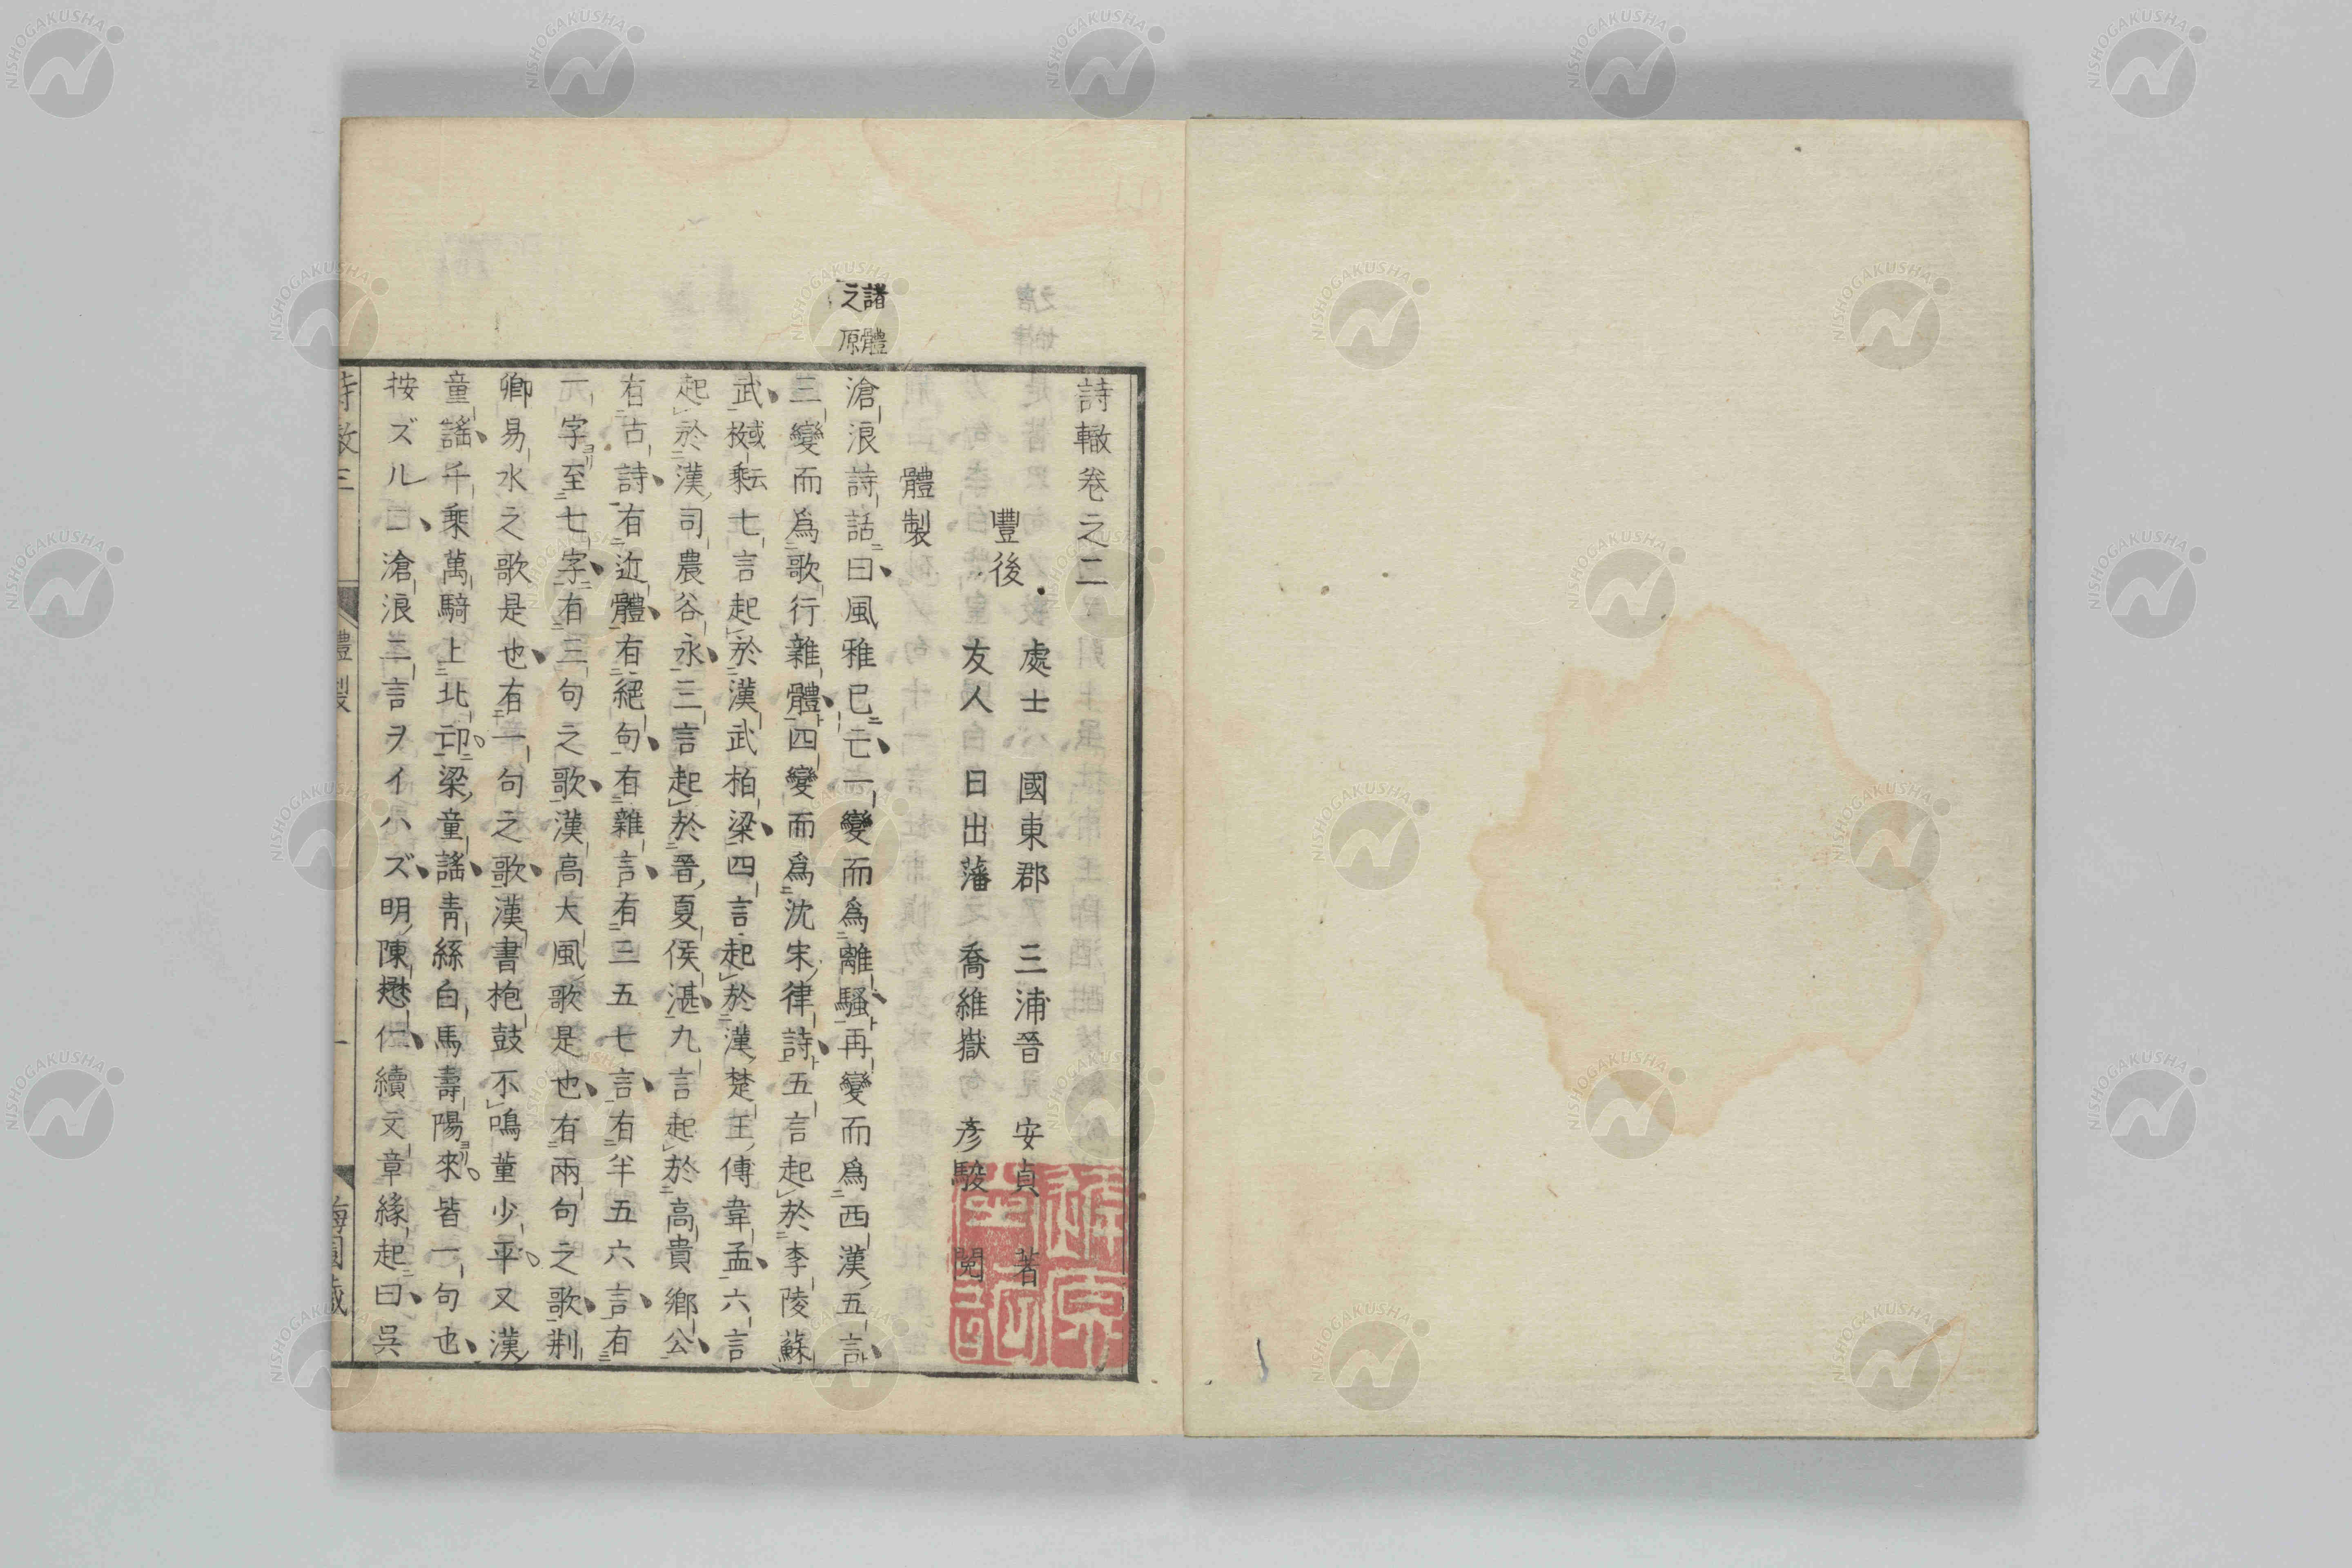 詩轍卷之二
豐後
處士 國東郡 三浦晉 安貞 著
友人 日出藩 喬維嶽 彥駿 閱
體製
諸體
之原
滄浪詩話曰風雅已亡一變而爲離騷再變而爲西漢五言
三變而爲歌行雜體四變而爲沈宋律詩五言起於李陵蘇
武或云枚乘七言起於漢武柏梁四言起於漢楚王傅韋孟六言
起於漢司農谷永三言起於晉夏侯湛九言起於高貴鄉公
右古詩有近體有絕句有雜言有三五七言有半五六言有
一字至七字有三句之歌漢高大風歌是也有兩句之歌荆
卿易水之歌是也有一句之歌漢書枹鼓不鳴董少平又漢
童謠千乘萬騎上北邙梁童謠靑絲白馬壽陽來皆一句也
按ズルニ滄浪二言ヲイハズ明陳懋仁續文章緣起曰吳
體製
NISHOGAKUSHA